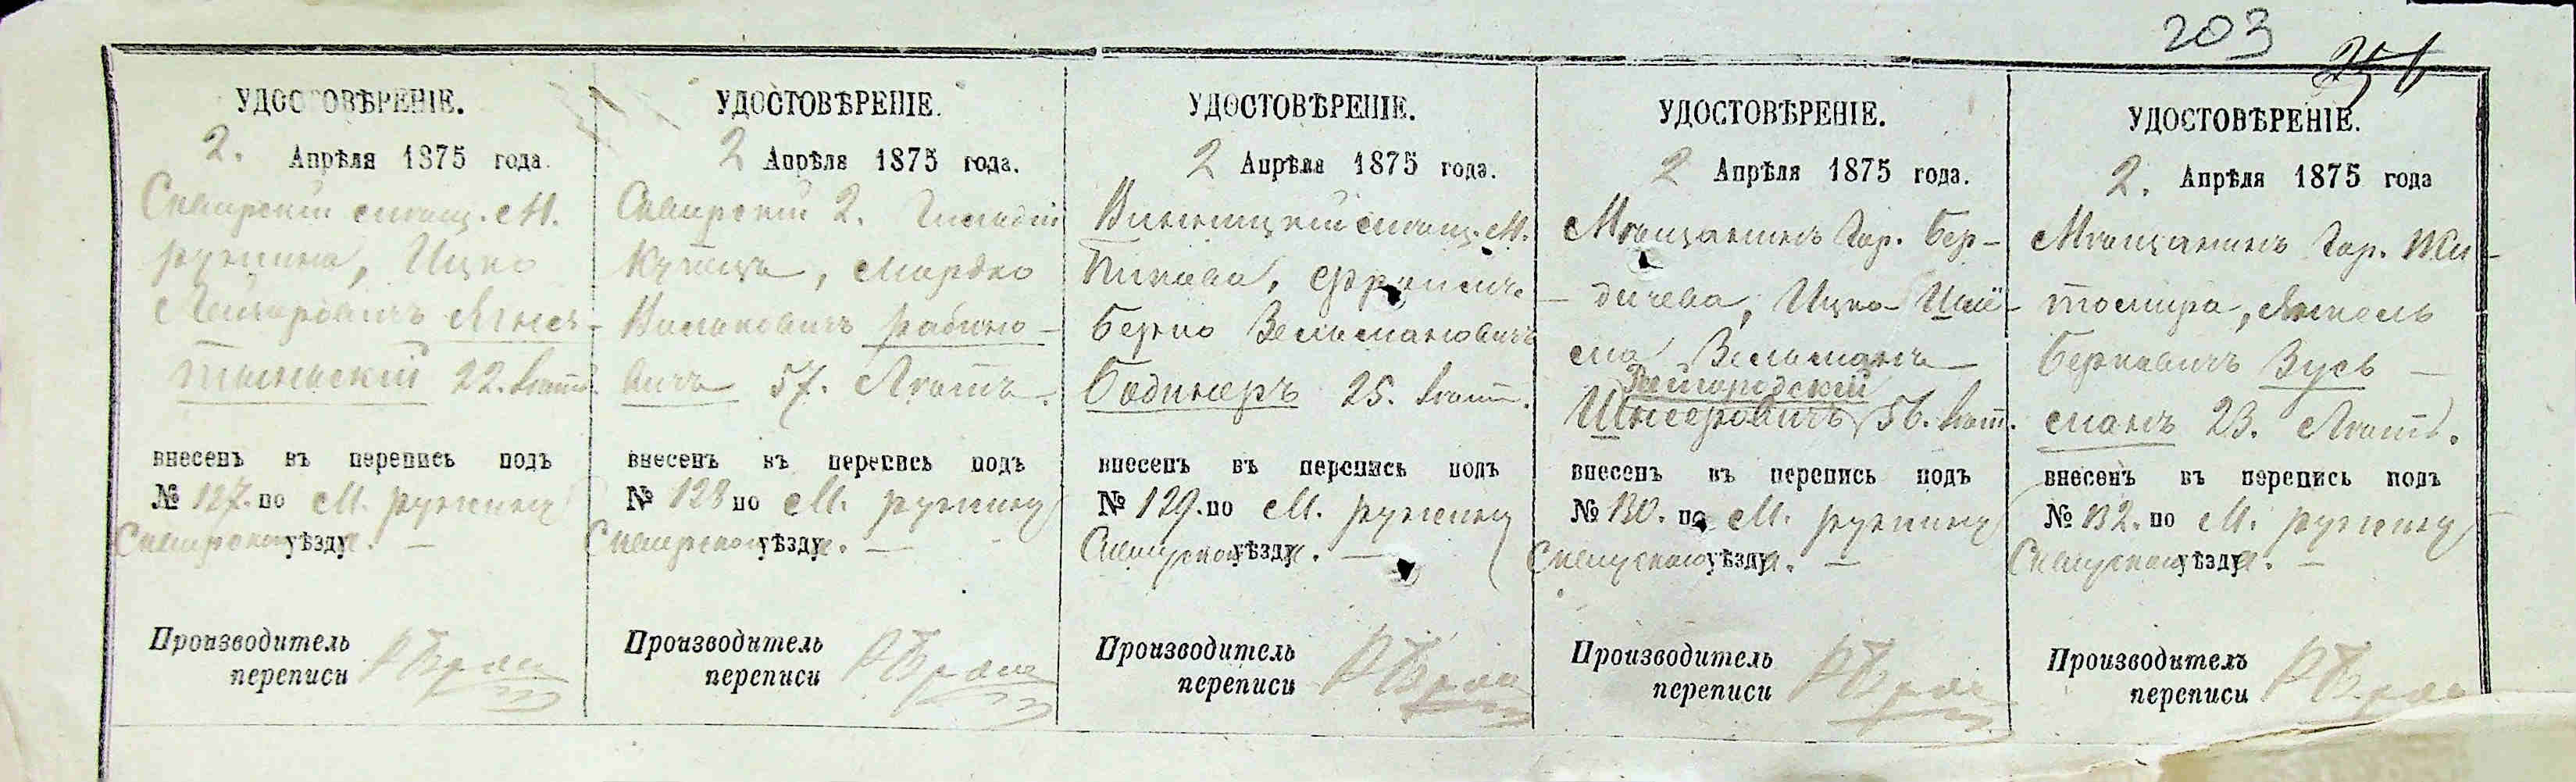 203
УДОСТОВѢРЕНІЕ.
2. Апрѣля 1875 года.
Сквирскій мѣщ. М.
Ружина, Ицко
Лейзоровичъ
22. лѣтъ
внесенъ въ перепись подъ
№ 127. по М. Ружину
Сквирскаго уѣзду. —
Производитель
переписи
УДОСТОВѢРЕНІЕ.
2 Апрѣля 1875 года.
Сквирскій 2. Гильдіи
Купецъ, Мордко
Рабино-
вичъ 57. Лѣтъ.
внесенъ въ перепись подъ
№ 128 по М. Ружину
Сквирскаго уѣзду. —
Производитель
переписи
УДОСТОВѢРЕНІЕ.
2 Апрѣля 1875 года.
Винницкій мѣщ. М.
Пикова,
Берко Зельмановичъ
Боднеръ 25. лѣтъ.
внесенъ въ перепись подъ
№ 129. по М. Ружину
Сквирскаго уѣзду. —
Производитель
переписи
УДОСТОВѢРЕНІЕ.
2 Апрѣля 1875 года.
Мѣщанинъ Гор. Бер-
-дичева, Ицко-
56. лѣт.
внесенъ въ перепись подъ
№ 130. по М. Ружину
Сквирскаго уѣзду. —
Производитель
переписи
УДОСТОВѢРЕНІЕ.
2. Апрѣля 1875 года
Мѣщанинъ Гор. Жи-
томира,
Берковичъ Зусь-
манъ 23. Лѣтъ.
внесенъ въ перепись подъ
№ 132. по М. Ружину
Сквирскаго уѣзду. —
Производитель
переписи